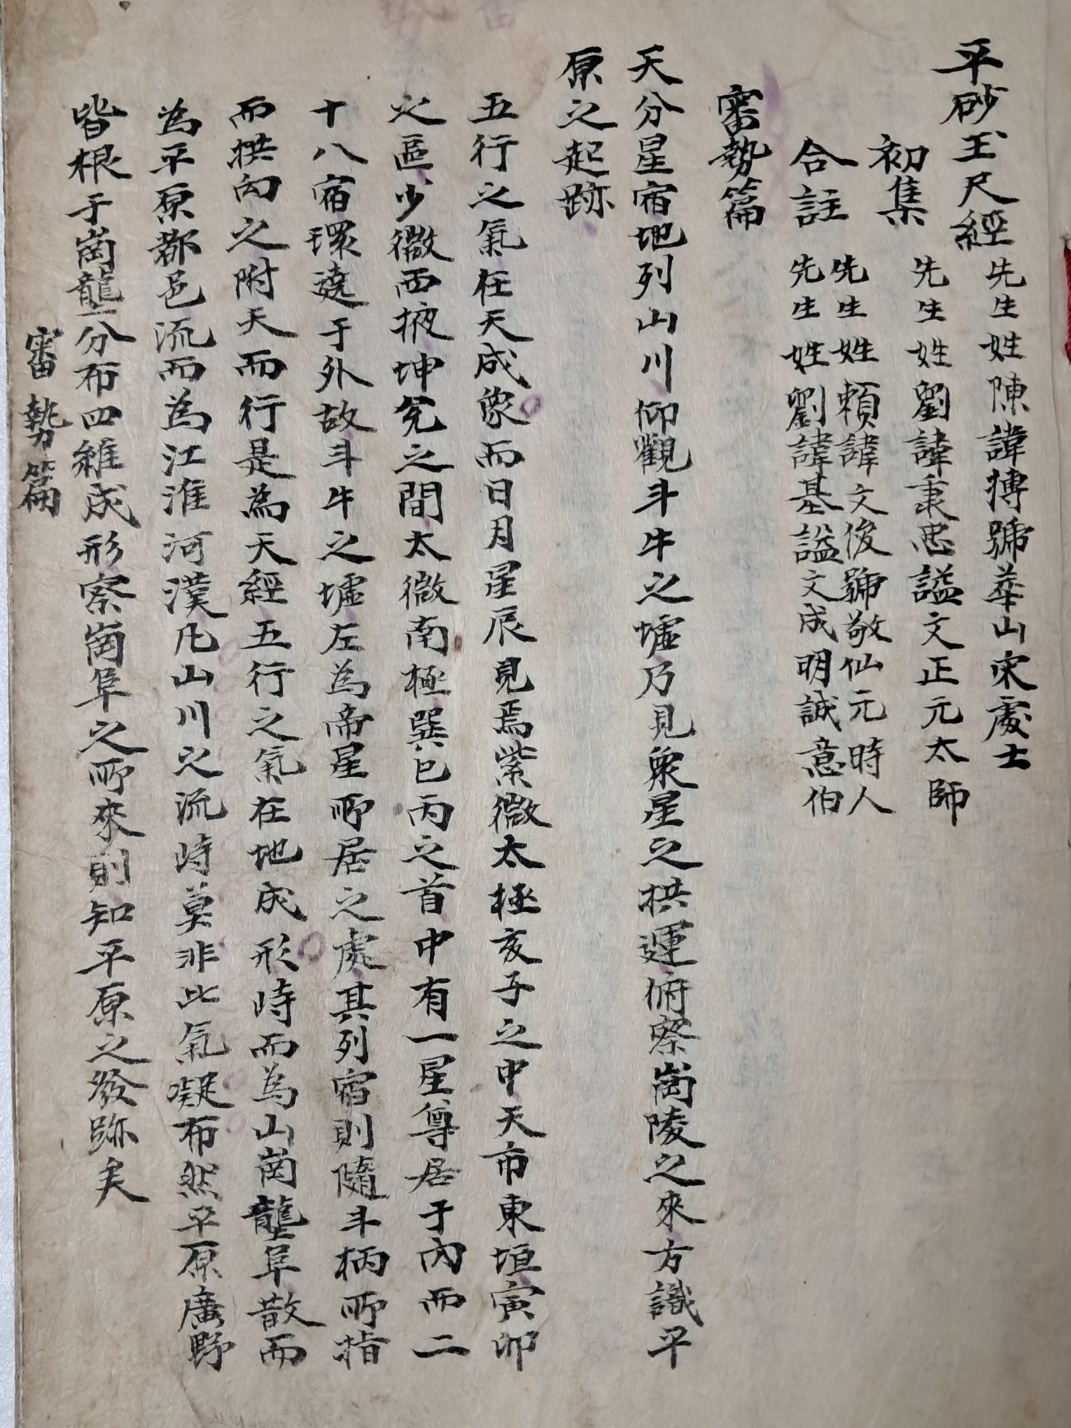 平砂玉尺經 先生姓陳諱摶號華山宋處士
初集 先生姓劉諱秉忠謚文正元太師
合註 先生姓賴諱文俊號敬仙元時人
先生姓劉諱基謚文成明誠意伯
審勢篇
天分星宿地列山川仰觀斗牛之墟乃見衆星之拱運俯察崗陵之來方識平
原之起跡
五行之氣在天成象而日月星辰見焉紫微太極亥子之中天市東垣寅卯
之區少微西掖坤兌之間太微南極巽巳丙之首中有一星尊居于內而二
十八宿環遶于外故斗牛之墟左為帝星所居之處其列宿則隨斗柄所指
而拱向之附天而行是為天經五行之氣在地成形峙而為山崗龍阜散而
為平原都邑流而為江淮河漢凡山川之流峙莫非此氣凝布然平原廣野
皆根于崗龍分布四維成形察崗阜之所來則知平原之發跡矣
審勢篇